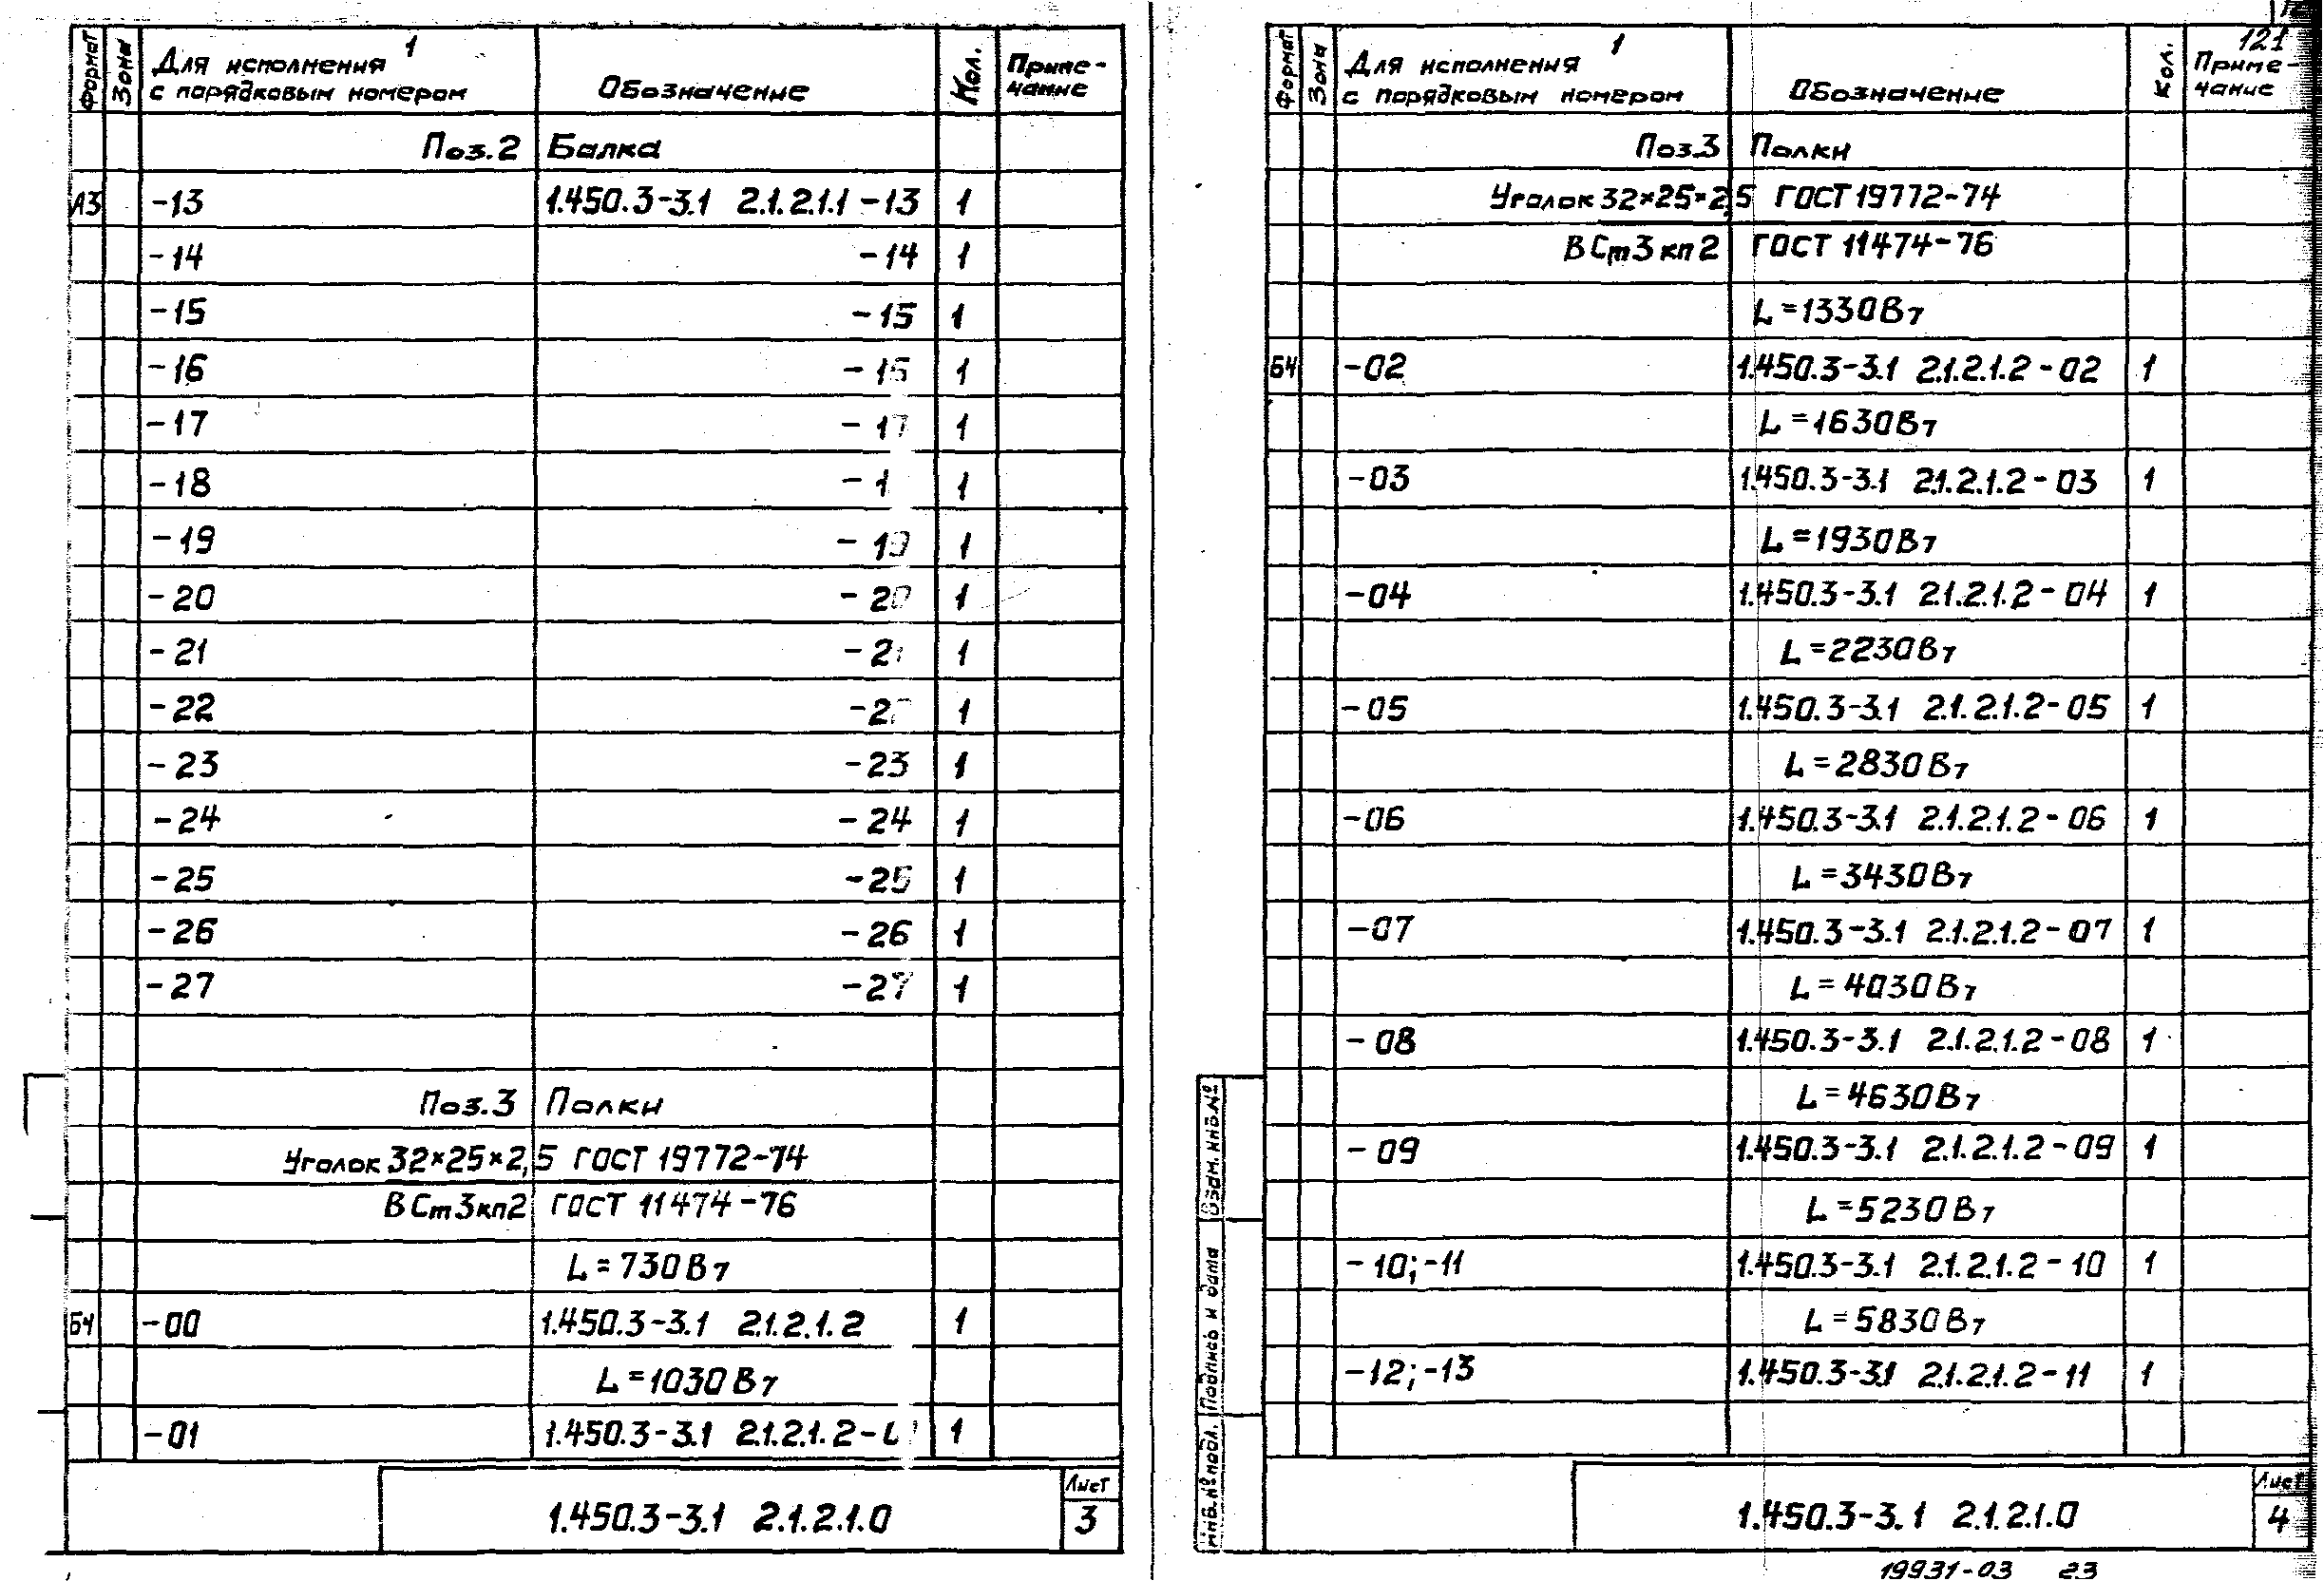 Формат Зона Для исполнения 1 с порядковым номером Обозначение Кол. Примечание
Поз.2 Балка
А3 -13 1.450.3-3.1 2.1.2.1.1-13 1
-14 -14 1
-15 -15 1
-16 -16 1
-17 -17 1
-18 -1 1
-19 -19 1
-20 -20 1
-21 -21 1
-22 -2 1
-23 -23 1
-24 -24 1
-25 -25 1
-26 -26 1
-27 -27 1
Поз.3 Полки
Уголок 32×25×2,5 ГОСТ 19772-74
ВСт3кп2 ГОСТ 11474-76
L=730Вт
Б4 -00 1.450.3-3.1 2.1.2.1.2 1
L=1030Вт
-01 1.450.3-3.1 2.1.2.1.2-0 1
1.450.3-3.1 2.1.2.1.0
Лист
3
121
Формат Зона Для исполнения 1 с порядковым номером Обозначение Кол. Примечание
Поз.3 Полки
Уголок 32×25×2,5 ГОСТ 19772-74
ВСт3кп2 ГОСТ 11474-76
L=1330Вт
Б4 -02 1.450.3-3.1 2.1.2.1.2-02 1
L=1630Вт
-03 1.450.3-3.1 2.1.2.1.2-03 1
L=1930Вт
-04 1.450.3-3.1 2.1.2.1.2-04 1
L=2230Вт
-05 1.450.3-3.1 2.1.2.1.2-05 1
L=2830Вт
-06 1.450.3-3.1 2.1.2.1.2-06 1
L=3430Вт
-07 1.450.3-3.1 2.1.2.1.2-07 1
L=4030Вт
-08 1.450.3-3.1 2.1.2.1.2-08 1
L=4630Вт
-09 1.450.3-3.1 2.1.2.1.2-09 1
L=5230Вт
-10;-11 1.450.3-3.1 2.1.2.1.2-10 1
L=5830Вт
-12;-13 1.450.3-3.1 2.1.2.1.2-11 1
Взам. инв.№
Подпись и дата
Инв.№ подл.
1.450.3-3.1 2.1.2.1.0
Лист
4
19931-03 23